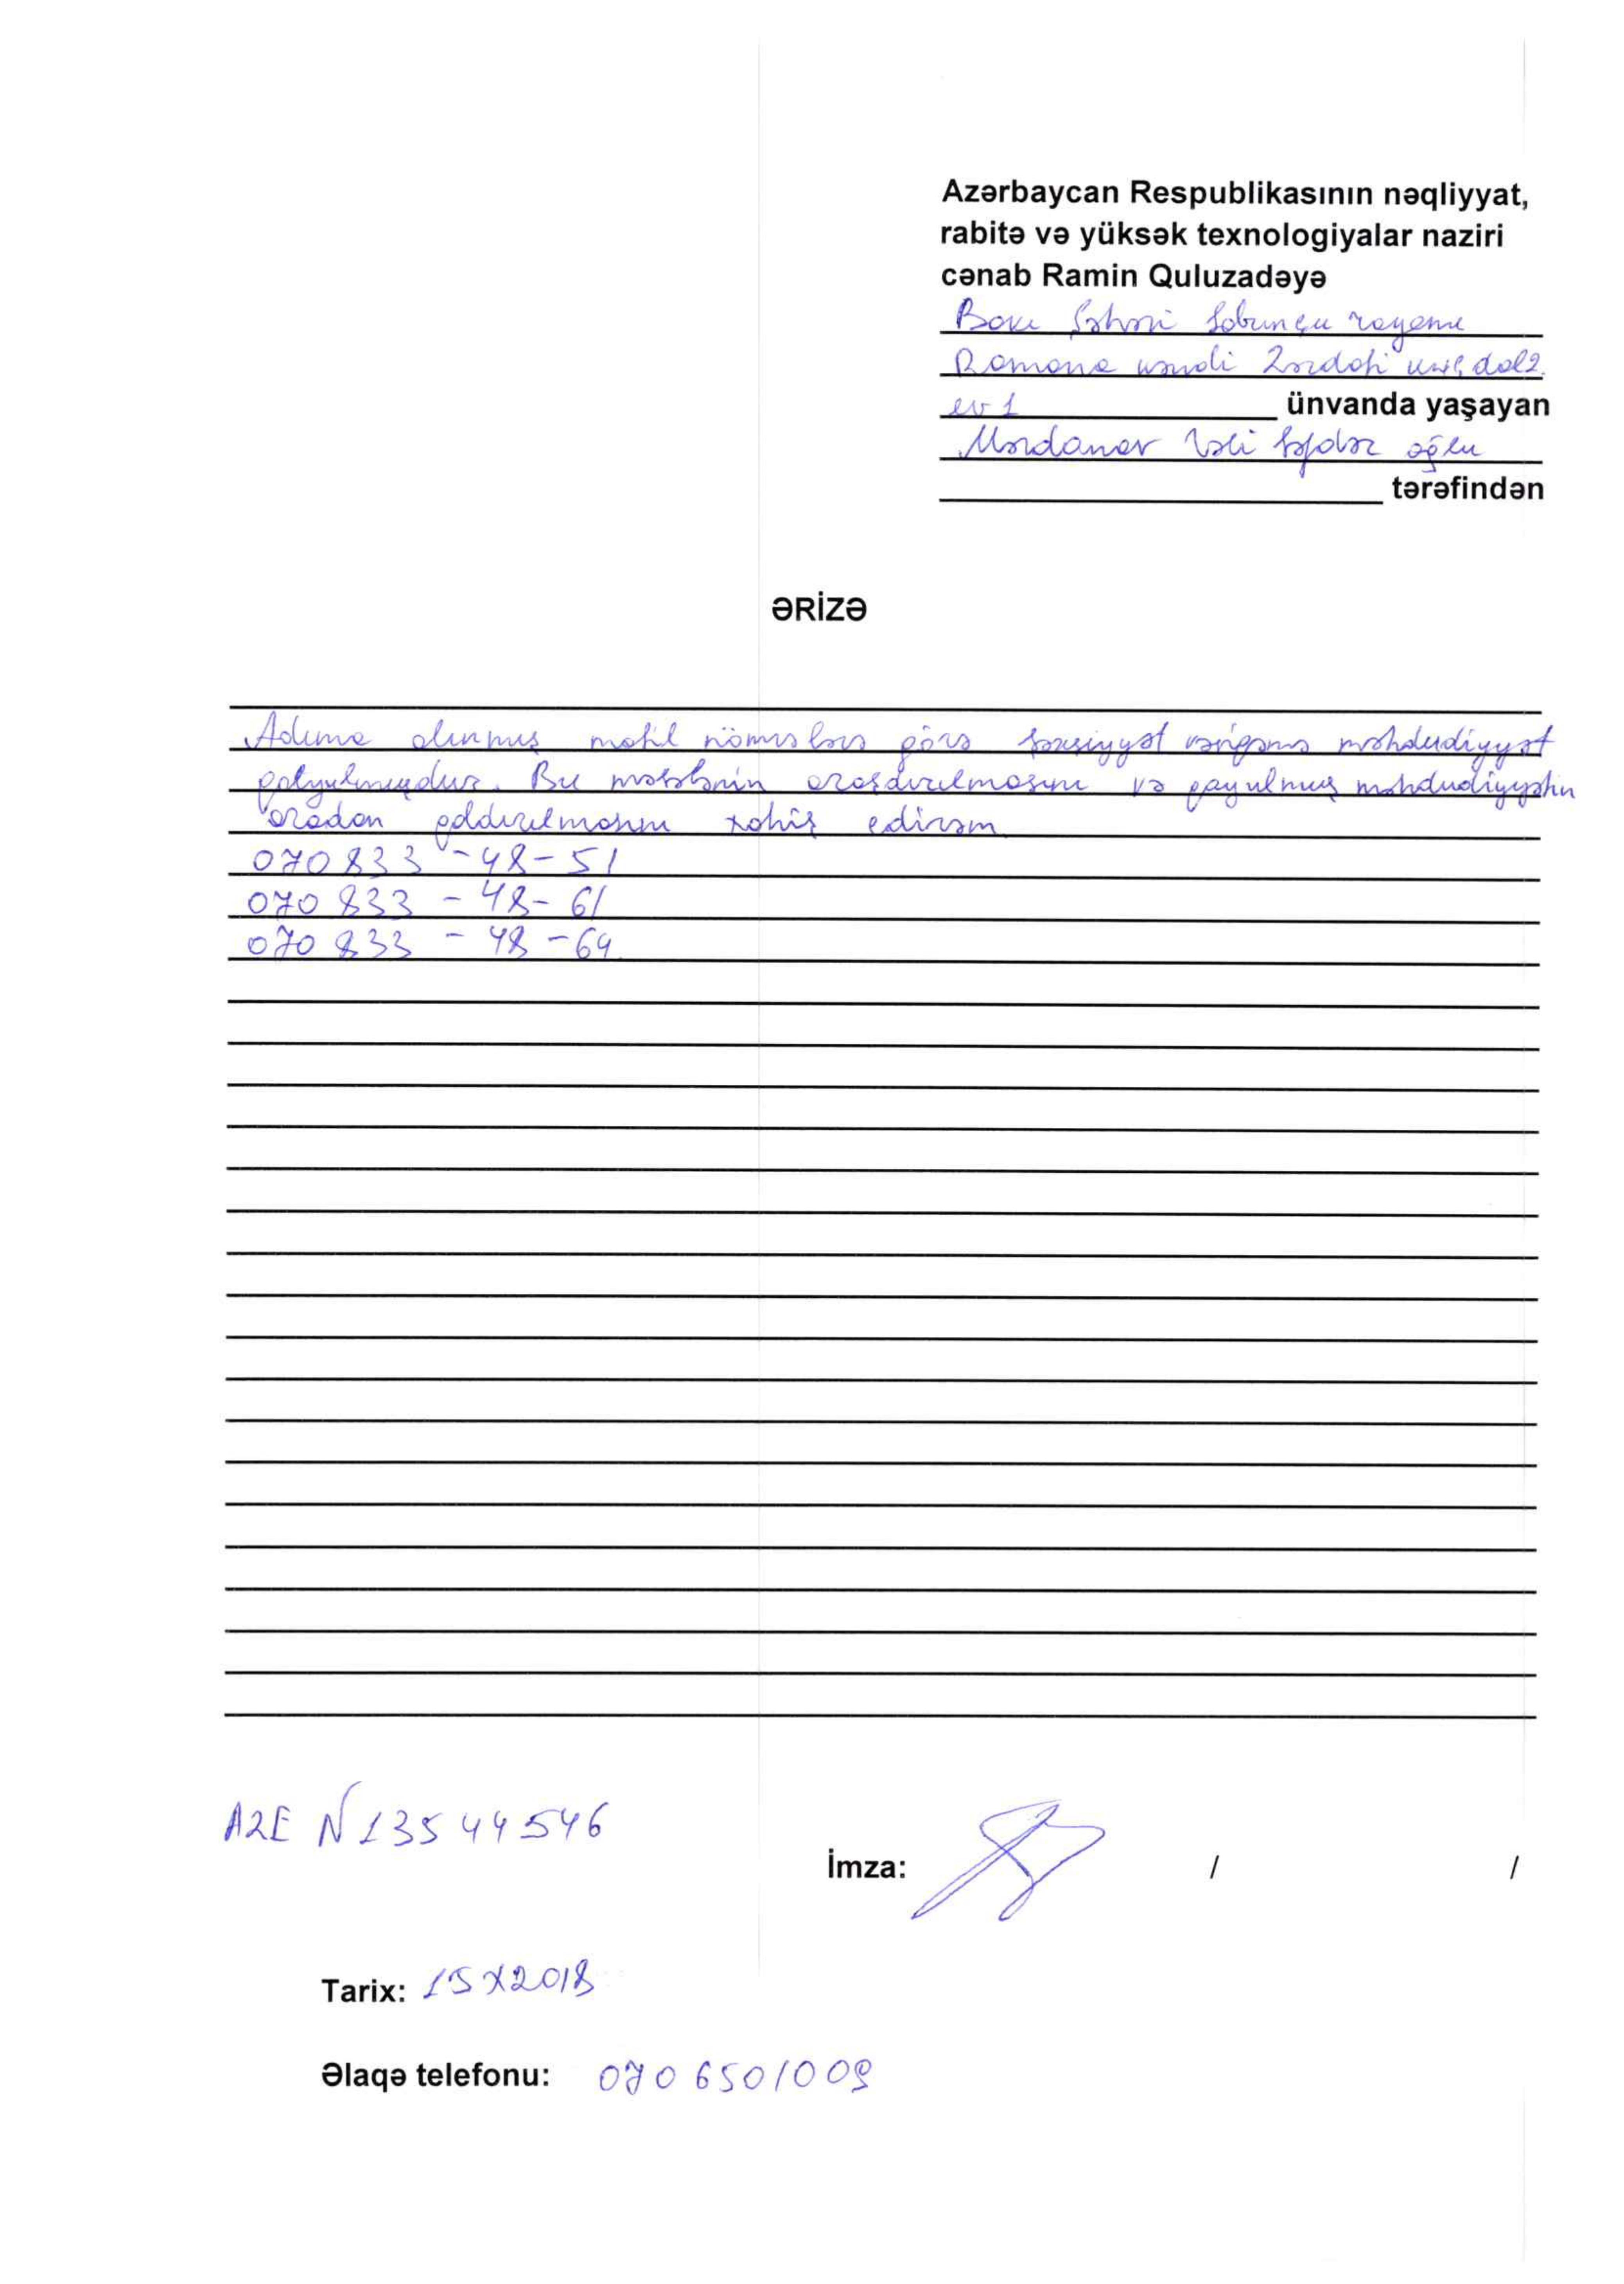 Azərbaycan Respublikasının nəqliyyat,
rabitə və yüksək texnologiyalar naziri
cənab Ramin Quluzadəyə
Bakı Şəhəri Sabunçu rayonu
Ramana kəndi Zərdabi küç dal2.
ev 1 ünvanda yaşayan
Mərdanov Vəli Səfdər oğlu
tərəfindən
ƏRİZƏ
Adıma alınmış mobil nömrələrə görə şəxsiyyət vərigəmə məhdudiyyət
qolyulmuşdur. Bu məsələnin araşdırılmasını və qoyulmuş məhdudiyyətin
aradan qaldırılmasını xahiş edirəm
070 833 - 48 - 51
070 833 - 48 - 61
070 833 - 48 - 64
AZE N 13544546
İmza: / /
Tarix: 15 X 2018
Əlaqə telefonu: 070 650 10 09